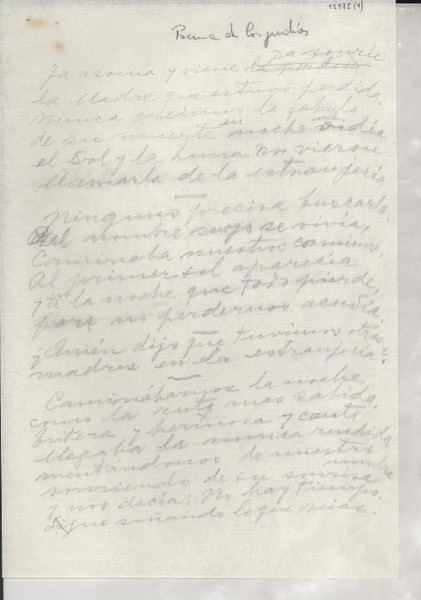 12975(1)
Poema de los judíos
ya sonríe
Ya asoma y viene
la Madre que estuvo perdida.
Nunca creímos la fábula
de su muerte en noche ni día
el Sol y la Luna nos vieron
llamarla de la extranjería
Ninguno precisa buscarla:
del nombre suyo se vivía,
Caminaba nuestros caminos,
Al primer sol aparecía
y a la noche que todo pierde,
por no perdernos acudía
¿Quién dijo que tuvimos otras
madres en la extranjería?
Caminábamos la noche
como la ruta mas sabida.
Entera y hermosa y
llegaba la nunca rendida
mentándonos de nuestro
nombre
de su sonrisa
y nos decía: No hay tiempo.
Sigue soñando lo que veías.